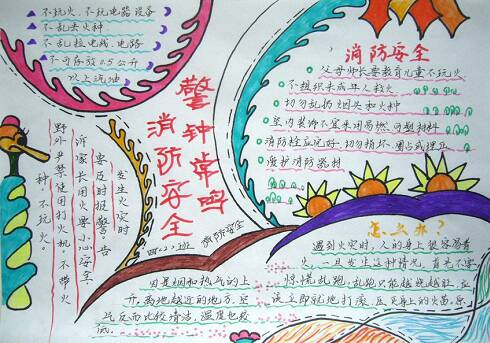 不玩火、不玩电器设备
不乱丢火种
不乱拉电线、电路
不可存放0.5公升
以上汽油
警钟常鸣
消防安全
发生火灾时
要及时报警。告
诉家长用火要小心安全
野外严禁使用打火机。不带火
种不玩火。
消防安全
父母师长要教育儿童不玩火
不组织未成年人救火
切勿乱扔烟头和火种
室内装饰不宜采用易燃可塑材料
消防栓应完好切勿损坏、圈占或埋压
爱护消防器材
四.2班
消防安全
因是烟和热气的上
升,离地越近的地方,空
气反而比较清洁,温度也较
低。
怎么办?
遇到火灾时,人的身上很容易着
火,一旦发生这种情况,首先不要
惊慌乱跑,乱跑只能越烧越旺,应
该立即就地打滚,压灭身上的火苗。